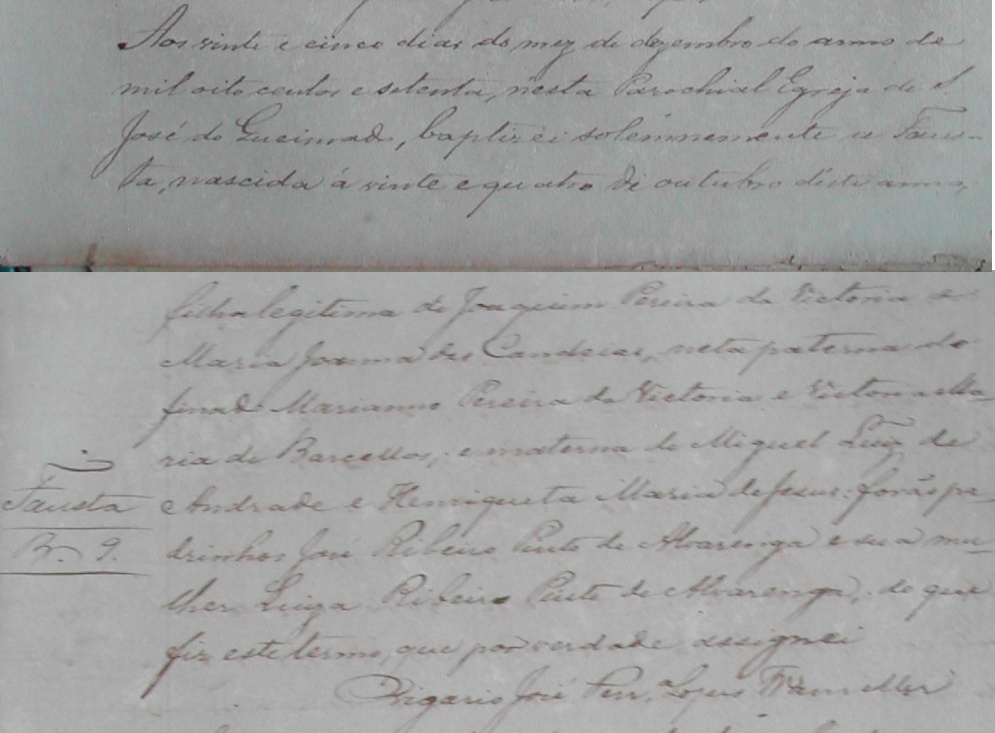 Aos vinte e cinco dias do mez de dezembro do anno de
mil oito centos e setenta, nesta Parochial Egreja de S.
José do Queimado, baptizei solemnemente a Faus-
ta, nascida á vinte e quatro de outubro d'este anno,
filha legitima de Joaquim Pereira da Victoria e
Maria Joanna das Candeias, neta paterna do
finado Marianno Pereira da Victoria e Victoria Ma-
ria de Barcellos, e materna de Miguel Luiz de
Andrade e Henriqueta Maria de Jesus: forão pa-
Fausta
drinhos José Ribeiro Pinto de Alvarenga e sua mu-
lher Luiza Ribeiro Pinto de Alvarenga, do que
fiz este termo, que por verdade assignei
Vigario José Ferr.ª Lopes